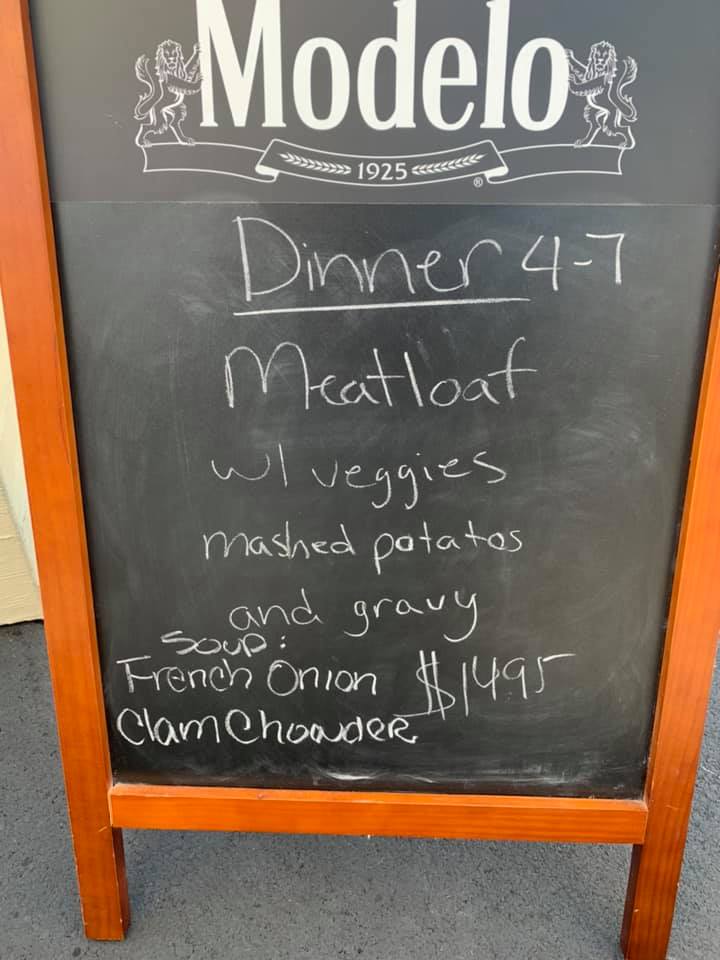 Modelo
1925
®
Dinner 4-7
Meatloaf
w/ veggies
mashed potatos
and gravy
Soup:
French Onion $1495
Clam Chowder